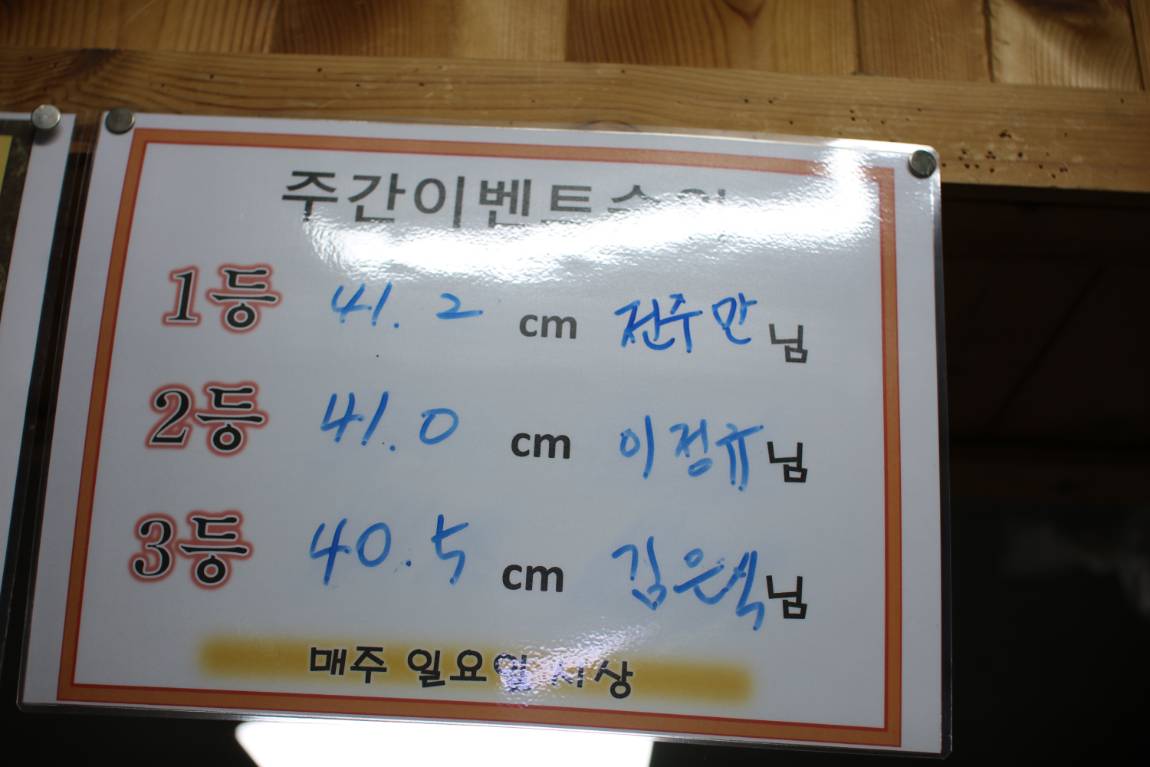 주간이벤트순위
1등 41.2 cm 전주만님
2등 41.0 cm 이정규님
3등 40.5 cm 김은석님
매주 일요일 시상